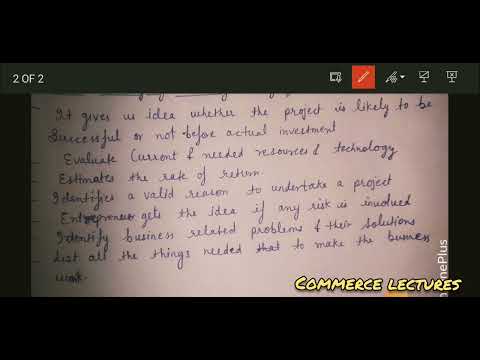 2 OF 2
It gives us idea whether the project is likely to be
Successful or not before actual investment
Evaluate Current & needed resources & technology
Estimates the rate of return.
Identifies a valid reason to undertake a project
Entrepreneur gets the idea if any risk is involved
Identify business related problems & their solutions
List all the things needed that to make the business
work.
COMMERCE LECTURES
nePlus